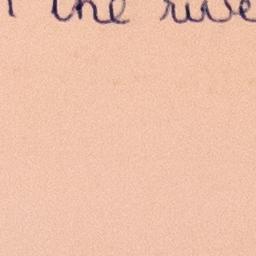 the rive